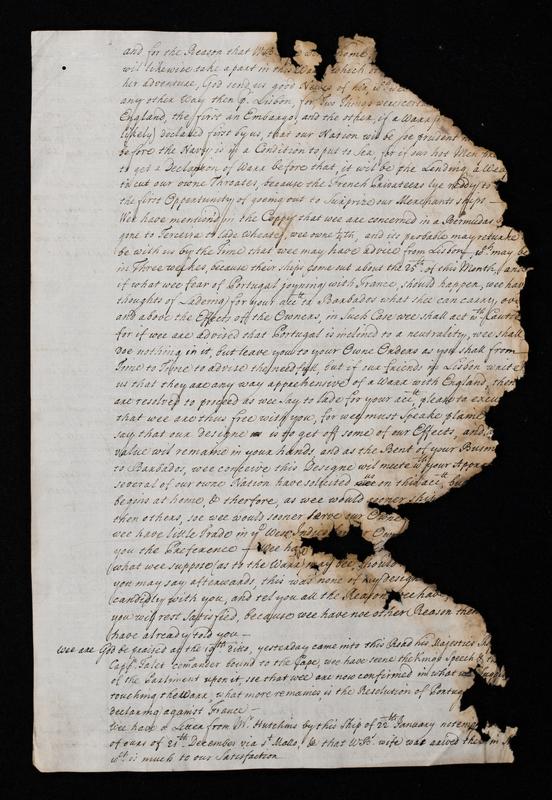 and for the Reason that
will likewise take a part in this which
her adventure, God send us good Newes of his
any other Way then p. Lisbon, for two things were
England, the first an Embargo, and the other, if a Warr
likely) declared first by us, that our Nation wil be soe prudent
before the Navy is in a Condition to put to Sea, for if our hot Men
to get a Declaration of Warr before that, it wil be the Lending a Wea
to cut our owne Throates, because the French Privateers lye ready to
the first Oppertunity of goeing out to Surprize our Merchant ships. —
Wee have mentioned in the Coppy that wee are concerned in a Bermudas
gone to Terceira to lade Wheate, wee owne 4th, and its probable may returne
be with us by the Time that wee may have advice from Lisbon, wch may be
in Three weekes, because their ships come out about the 25th of this Month, and
if what wee fear of Portugal joyning with France, should happen, wee hav
thoughts of Ladeing for your acctt to Barbados what shee can carry, ove
and above the Effects of the Owners, in such Case wee shall act wth Cautio
for if wee are advised that Portugal is inclined to a neutrality, wee shall
doe nothing in it, but leave you to your Owne Orders as you shall from
Time to Time to advise the needfull, but if our friends in Lisbon write
us that they are any way apprehensive of a Warr with England, then
are resolved to proceed as wee say to lade for your acctt, please to excu
that wee are thus free with you, for wee must speake plaine
say that our designe is to get off some of our Effects, and
value wil remaine in your hands, and as the Bent of your Busin
to Barbados, wee conceive this Designe wil meete wth your
severall of our owne Nation have solicited on this acctt, bu
begins at home, & therefore, as wee would sooner
then others, soe wee would sooner serve our Owne
wee have little Trade in ye West Indies
you the Preference — Wee ha
(what wee suppose (as to the Warr) may bee, should
you may say afterwards, this was none of my designe
(candidly with you, and tel you all the Reason wee have
you wil rest Satisfied, because wee have noe other Reason then
(have already told you —
Wee are God be praised at the 19th ditto, yesterday came into this Road his Majesties
Capt. Salet comander bound to the Cape, wee have seene the Kings Speech &
of the Parliment upon it, soe that wee are now confirmed in what
touching the Warr, what more remaines, is the Resolution of Portug
declaring against France —
Wee have a Letter from Mr. Hutchins by this Ship of 22th January
of ours of 21th December via St. Malo, & that wife was arived
wch is much to our Satisfaction